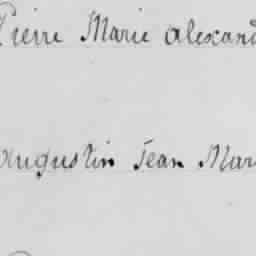 Pierre Marie alexand
augustin Jean Mar